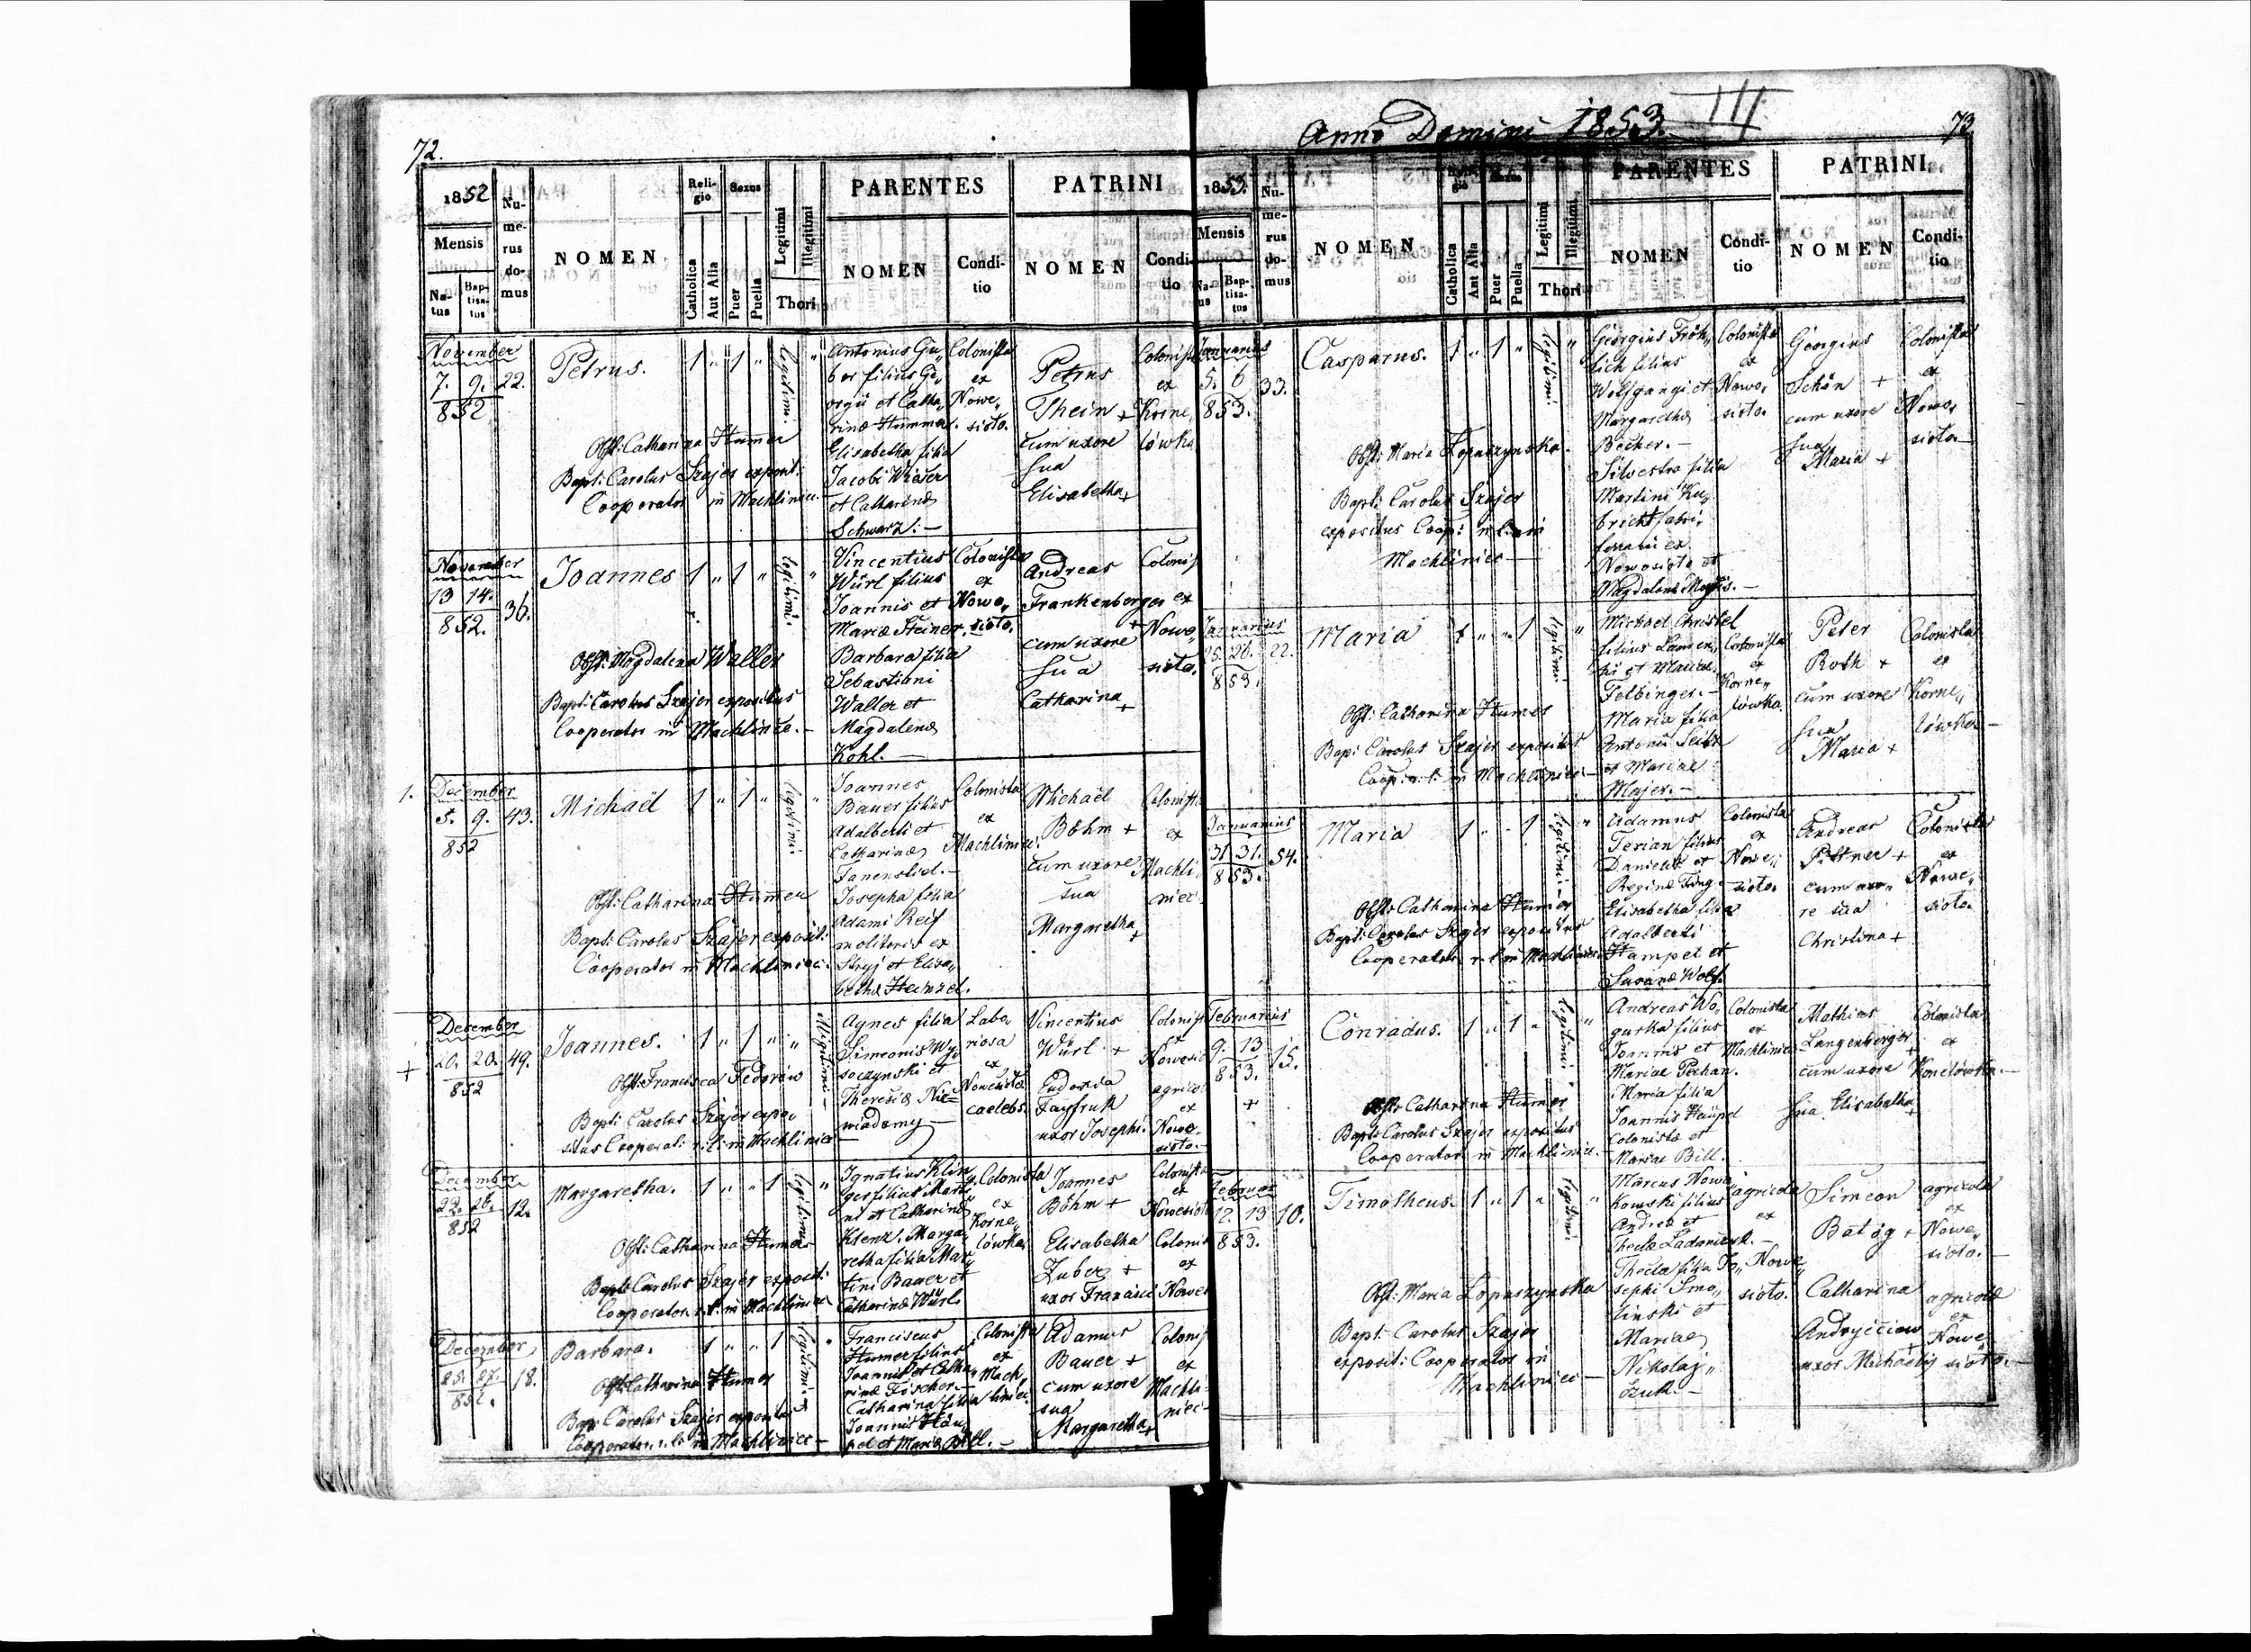 72.
1852
Mensis
Na-
tus
Bap-
tisa-
tus
Nu-
me-
rus
do-
mus
NOMEN
Reli-
gio
Catholica
Aut Alia
Sexus
Puer
Puella
Legitimi
Illegitimi
Thori
PARENTES
NOMEN
Condi-
tio
PATRINI
NOMEN
Condi-
tio
November
7. 9. 22.
852
Petrus.
1 " 1 "
legitimi
Obst: Catharina Humer
Bapt: Carolus Szajer exposit:
Cooperator in Machliniec.
Antonius Gu„
ber filius Ge„
orgii et Catha„
rinæ Hummer.
Elisabetha filia
Jacobi Wieser
et Catharinæ
Schwarz. —
Colonista
ex
Nowe„
sioto.
Petrus
Thein +
cum uxore
sua
Elisabetha +
Colonista
ex
Korne„
lówka
November
13 14. 36.
852.
Joannes
1 " 1 "
legitimi.
Obst: Magdalena Waller
Bapt: Carolus Szajer expositus
Cooperator in Machliniec. —
Vincentius
Würl filius
Joannis et
Mariæ Steiner.
Barbara filia
Sebastiani
Waller et
Magdalenæ
Kohl. —
Colonista
ex
Nowo„
sioto.
Andreas
Frankenberger
cum uxore
sua
Catharina +
Colonist
ex
Nowo„
sioto.
1.
December
5. 9. 43.
852
Michaël
1 " 1 "
legitimi
Obst: Catharina Humer
Bapt: Carolus Szajer exposit:
Cooperator in Machliniec.
Joannes
Bauer filius
Adalberti et
Catharinæ
Josepha filia
Adami Reif
molitoris ex
Stryj et Elisa„
bethæ
Colonista
ex
Machliniec.
Michaël
Böhm +
cum uxore
sua
Margaretha +
Colonist
ex
Machli„
niec.
December
20. 20. 49.
852
+
Joannes.
1 " 1 " "
illegitimi
Obst: Francisca Fedorów
Bapt: Carolus Szajer expo„
situs Cooperat: r. l: in Machliniec —
Agnes filia
Simeonis Wy„
soczynski et
Theresiæ Nie=
wiadomy —
Labo„
riosa
ex
Nowesioto
caelebs.
Vincentius
Würl +
Eudoxia
uxor Josephi.
Colonist
ex
Nowesio
agricol
ex
Nowe
sioto. —
December
22. 26. 12.
852
Margaretha.
1 " " 1
legitimi
Obst: Catharina Humer
Bapt: Carolus Szajer exposit:
Cooperator r. l. in Machliniec
Ignatius Klin„
ger filius Marti„
ni et Catharinæ
Klenk. Marga„
retha filia Mar„
tini Bauer et
Catharinæ Würl.
Colonista
ex
Korne„
lówka
Joannes
Böhm +
Elisabetha
Zuber +
uxor Francisci
Colonista
ex
Nowesioto
Colonist
ex
Nowes
December
25. 27. 18.
852.
Barbara.
1 " " 1
legitimi
Obst: Catharina Humer
Bapt: Carolus Szajer expositus
Cooperator r. l. in Machliniec —
Franciscus
Humer filius
Joannis et Catha„
rinæ Fischer. —
Catharina filia
Joannis Hau„
pel et Mariæ Bill. —
Colonista
ex
Mach„
liniec.
Adamus
Bauer +
cum uxore
sua
Margaretha +
Colonist
ex
Machli=
niec
Anno Domini 1853. III
73
1853.
Mensis
Na-
tus
Bap-
tisa-
tus
Nu-
me-
rus
do-
mus
NOMEN
Reli-
gio
Catholica
Aut Alia
Sexus
Puer
Puella
Legitimi
Illegitimi
Thori
PARENTES
NOMEN
Condi-
tio
PATRINI
NOMEN
Condi-
tio
Januarius
5. 6 33.
853.
Casparus.
1 " 1 "
legitimi.
Obst: Maria Łopuszynska.
Bapt: Carolus Szajer
expositus Coop:
Machliniec —
Georgius Fröh„
lich filius
Wolfgangi et
Margarethæ
Becker. —
Silvestra filia
Martini Ku„
ferrarii ex
Nowosioto et
Colonista
ex
Nowo„
sioto.
Georgius
Schön +
cum uxore
sua
Maria +
Colonista
ex
Nowo„
sioto
Januarius
25. 26. 22.
853.
Maria
1 " " 1
legitimi
Obst: Catharina Humer
Bapt: Carolus Szajer expositus
Coop: r. l: in Machliniec —
Michael Christel
filius Lauren„
tii et Mariæ
Felbinger. —
Maria filia
Antonii Seitz
et Mariæ
Majer. —
Colonista
ex
Korne„
lówka.
Peter
Roth +
cum uxore
sua
Maria +
Colonista
ex
Korne„
lówka —
Januarius
31. 31. 54.
853.
Maria
1 " " 1
legitimi
Obst: Catharina Humer
Bapt: Carolus Szajer expositus
Cooperator r. l. in Machliniec
Adamus
Terian filius
Danielis et
Reginæ
Elisabetha filia
Adalberti
Hampel et
Susanæ Wolf.
Colonista
ex
Nowe„
sioto.
Andreas
Pittner +
cum uxo„
re sua
Christina +
Colonista
ex
Nowe„
sioto.
Februarius
9. 13 15.
853.
+
Conradus.
1 " 1 "
legitimi
Obst: Catharina Humer
Bapt: Carolus Szajer expositus
Cooperator in Machliniec.
Andreas Wo„
gurka filius
Joannis et
Mariæ Pechan.
Maria filia
Joannis Haupel
Colonistæ et
Mariæ Bill.
Colonista
ex
Machliniec
Mathias
Langenberger +
cum uxore
sua Elisabetha +
Colonista
ex
Februar
12. 13 10.
853.
Timotheus.
1 " 1 "
legitimi
Obst: Maria Łopuszynska
Bapt: Carolus Szajer
exposit: Cooperator in
Machliniec —
Marcus Nowa„
kowski filius
Andreæ et
Thecla filia Jo„
sephi Smo„
linski et
Mariæ
Nikolaj„
czuk. —
agricola
ex
Nowe„
sioto.
Simeon
Batóg +
Catharina
uxor Michaelis
agricola
ex
Nowe„
sioto. —
agricola
ex
Nowe„
sioto. —